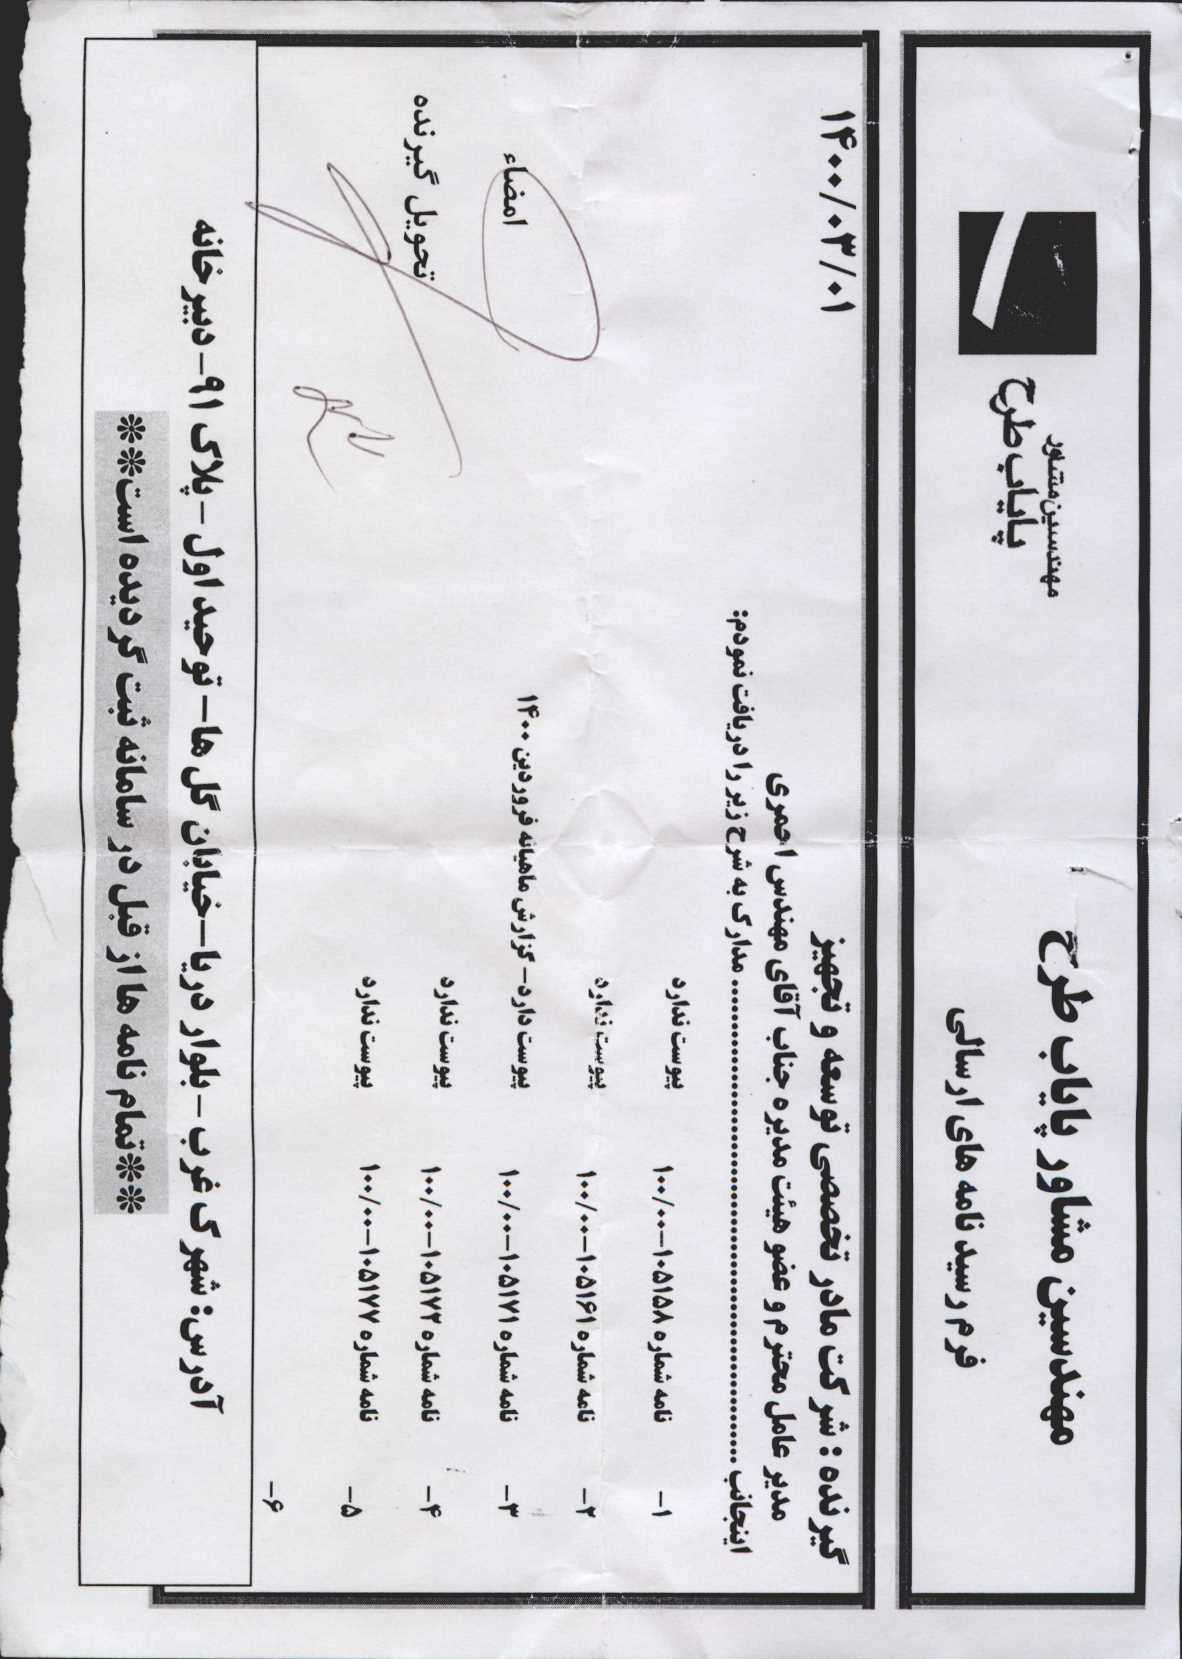 مهندسین مشاور پایاب طرح
فرم رسید نامه های ارسالی
مهندسین مشاور
پایاب طرح
۱۴۰۰/۰۳/۰۱
گیرنده : شرکت مادر تخصصی توسعه و تجهیز
مدیر عامل محترم و عضو هیئت مدیره جناب آقای مهندس احمری
اینجانب ................................................ مدارک به شرح زیر را دریافت نمودم:
۱- نامه شماره ۱۰۵۱۵۸-۱۰۰/۰۰ پیوست ندارد
۲- نامه شماره ۱۰۵۱۶۱-۱۰۰/۰۰ پیوست ندارد
۳- نامه شماره ۱۰۵۱۷۱-۱۰۰/۰۰ پیوست دارد- گزارش ماهیانه فروردین ۱۴۰۰
۴- نامه شماره ۱۰۵۱۷۲-۱۰۰/۰۰ پیوست ندارد
۵- نامه شماره ۱۰۵۱۷۷-۱۰۰/۰۰ پیوست ندارد
۶-
امضاء
تحویل گیرنده
آدرس: شهرک غرب – بلوار دریا–خیابان گل ها– توحید اول – پلاک ۹۱– دبیرخانه
**تمام نامه ها از قبل در سامانه ثبت گردیده است**